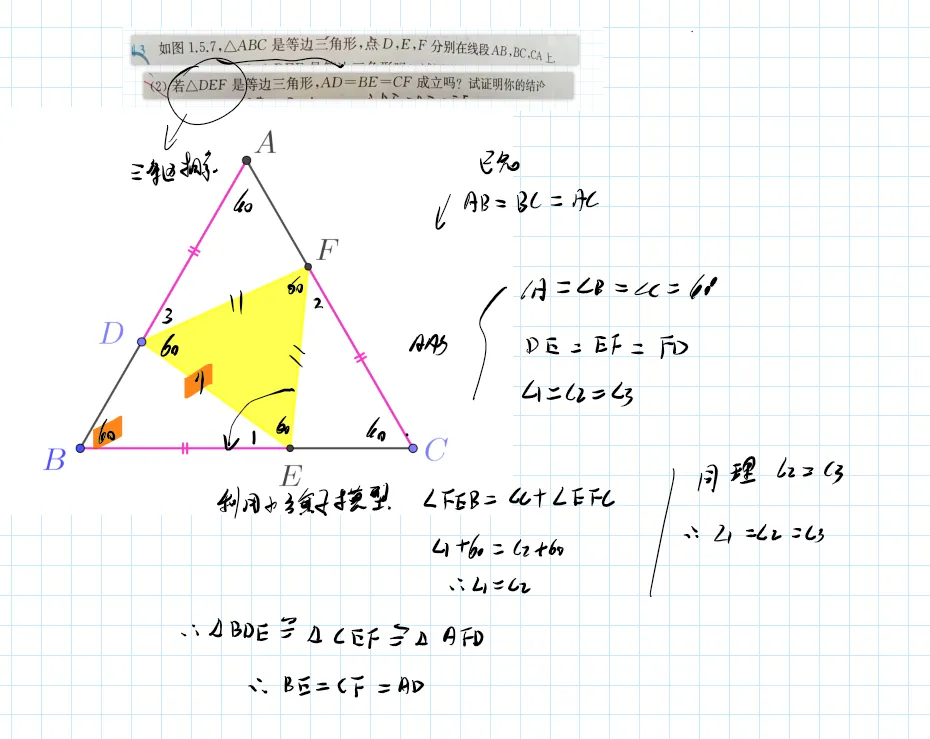 如图 1.5.7,△ABC 是等边三角形,点 D,E,F 分别在线段 AB,BC,CA 上
(2) 若△DEF 是等边三角形,AD=BE=CF 成立吗? 试证明你的结论
A
已知
60
AB=BC=AC
F
60
2
∠A=∠B=∠C=60
3
D
60
AAS
DE=EF=FD
∠1=∠2=∠3
60
1
60
60
B
E
C
∠FEB=∠C+∠EFC
同理 ∠2=∠3
∠1+60=∠2+60
∴∠1=∠2=∠3
∴∠1=∠2
∴△BDE≌△CEF≌△AFD
∴BE=CF=AD